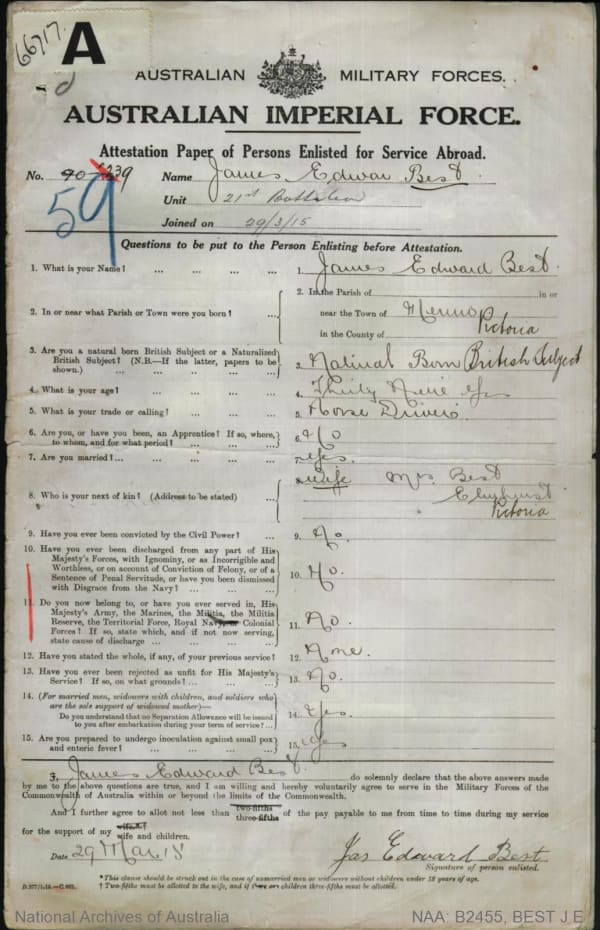 66717.
A
AUSTRALIAN MILITARY FORCES.
AUSTRALIAN IMPERIAL FORCE.
Attestation Paper of Persons Enlisted for Service Abroad.
No. Name James Edwar Best.
59
Unit 21st Battalion
Joined on 29/3/15
Questions to be put to the Person Enlisting before Attestation.
1. What is your Name? ... ... ... ... 1. James Edward Best.
2. In or near what Parish or Town were you born? ... 2. In the Parish of in or
near the Town of
in the County of Victoria
3. Are you a natural born British Subject or a Naturalized
British Subject? (N.B.—If the latter, papers to be
shown.) ... ... ... ... 3. Natural Born British Subject
4. What is your age? ... ... ... ... 4. Thirty Yrs
5. What is your trade or calling? ... ... ... 5. Horse Driver
6. Are you, or have you been, an Apprentice? If so, where,
to whom, and for what period? ... ... ... 6. No
7. Are you married?... ... ... ... 7. Yes.
8. Who is your next of kin? (Address to be stated) ... 8. Wife Mrs Best
Elmhurst
Victoria
9. Have you ever been convicted by the Civil Power? ... 9. No.
10. Have you ever been discharged from any part of His
Majesty's Forces, with Ignominy, or as Incorrigible and
Worthless, or on account of Conviction of Felony, or of a
Sentence of Penal Servitude, or have you been dismissed
with Disgrace from the Navy? ... ... ... 10. No.
11. Do you now belong to, or have you ever served in, His
Majesty's Army, the Marines, the Militia, the Militia
Reserve, the Territorial Force, Royal Navy, or Colonial
Forces? If so, state which, and if not now serving,
state cause of discharge ... ... ... 11. No.
12. Have you stated the whole, if any, of your previous service? 12. None.
13. Have you ever been rejected as unfit for His Majesty's
Service? If so, on what grounds? ... ... 13. No.
14. (For married men, widowers with children, and soldiers who
are the sole support of widowed mother)—
Do you understand that no Separation Allowance will be issued
to you after embarkation during your term of service? ... 14. Yes.
15. Are you prepared to undergo inoculation against small pox
and enteric fever? ... ... ... ... 15. Yes
I, James Edward Best. do solemnly declare that the above answers made
by me to the above questions are true, and I am willing and hereby voluntarily agree to serve in the Military Forces of the
Commonwealth of Australia within or beyond the limits of the Commonwealth.
And I further agree to allot not less than two-fifths three-fifths of the pay payable to me from time to time during my service
for the support of my wife† wife and children.
Date 29 Mar 15 Jas Edward Best
Signature of person enlisted.
*This clause should be struck out in the case of unmarried men or widowers without children under 18 years of age.
† Two-fifths must be allotted to the wife, and if there are children three-fifths must be allotted.
National Archives of Australia NAA: B2455, BEST J E